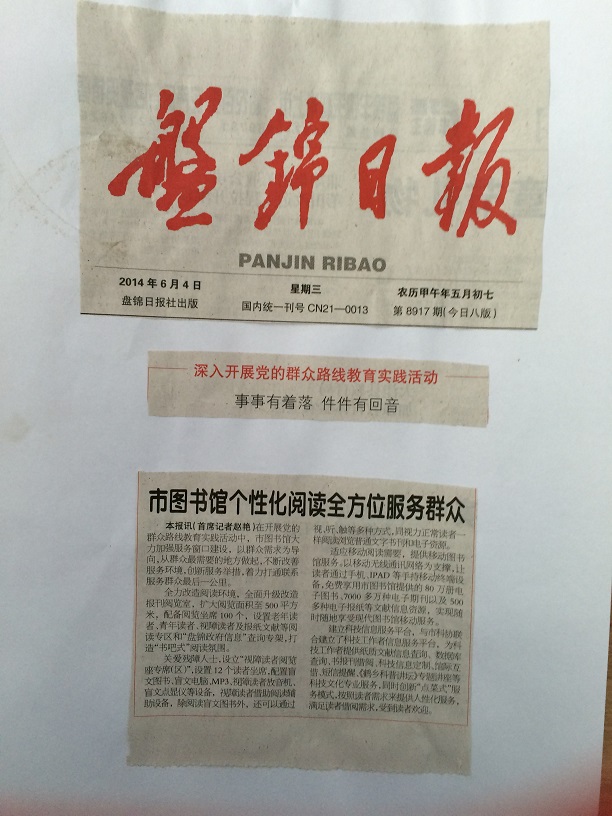 盤錦日報
PANJIN RIBAO
2014年6月4日
盘锦日报社出版
星期三
国内统一刊号CN21—0013
农历甲午年五月初七
第8917期(今日八版)
深入开展党的群众路线教育实践活动
事事有着落 件件有回音
市图书馆个性化阅读全方位服务群众
本报讯(首席记者赵艳)在开展党的
群众路线教育实践活动中，市图书馆大
力加强服务窗口建设，以群众需求为导
向，从群众最需要的地方做起，不断改善
服务环境，创新服务举措，着力打通联系
服务群众最后一公里。
全力改造阅读环境，全面升级改造
报刊阅览室，扩大阅览面积至500平方
米，配备阅览坐席100个，设置老年读
者、青年读者、视障读者及报纸文献等阅
读专区和“盘锦政府信息”查询专架，打
造“书吧式”阅读氛围。
关爱残障人士，设立“视障读者阅览
座专席(区)”，设置12个读者坐席，配置盲
文图书、盲文电脑、MP3、视障读者放音机、
盲文点显仪等设备，视障读者借助阅读辅
助设备，除阅读盲文图书外，还可以通过
视、听、触等多种方式，同视力正常读者一
样阅读浏览普通文字书刊和电子资源。
适应移动阅读需要，提供移动图书
馆服务，以移动无线通讯网络为支撑，让
读者通过手机、IPAD等手持移动终端设
备，免费享用市图书馆提供的80万册电
子图书、7000多万种电子期刊以及500
多种电子报纸等文献信息资源，实现随
时随地享受现代图书馆移动服务。
建立科技信息服务平台，与市科协联
合建立了科技工作者信息服务平台，为科
技工作者提供纸质文献信息查询、数据库
查询、书报刊借阅、科技信息定制、馆际互
借、短信提醒、《鹤乡科普讲坛》专题讲座等
科技文化专业服务，同时创新“点菜式”服
务模式，按照读者需求来提供人性化服务，
满足读者借阅需求，受到读者欢迎。